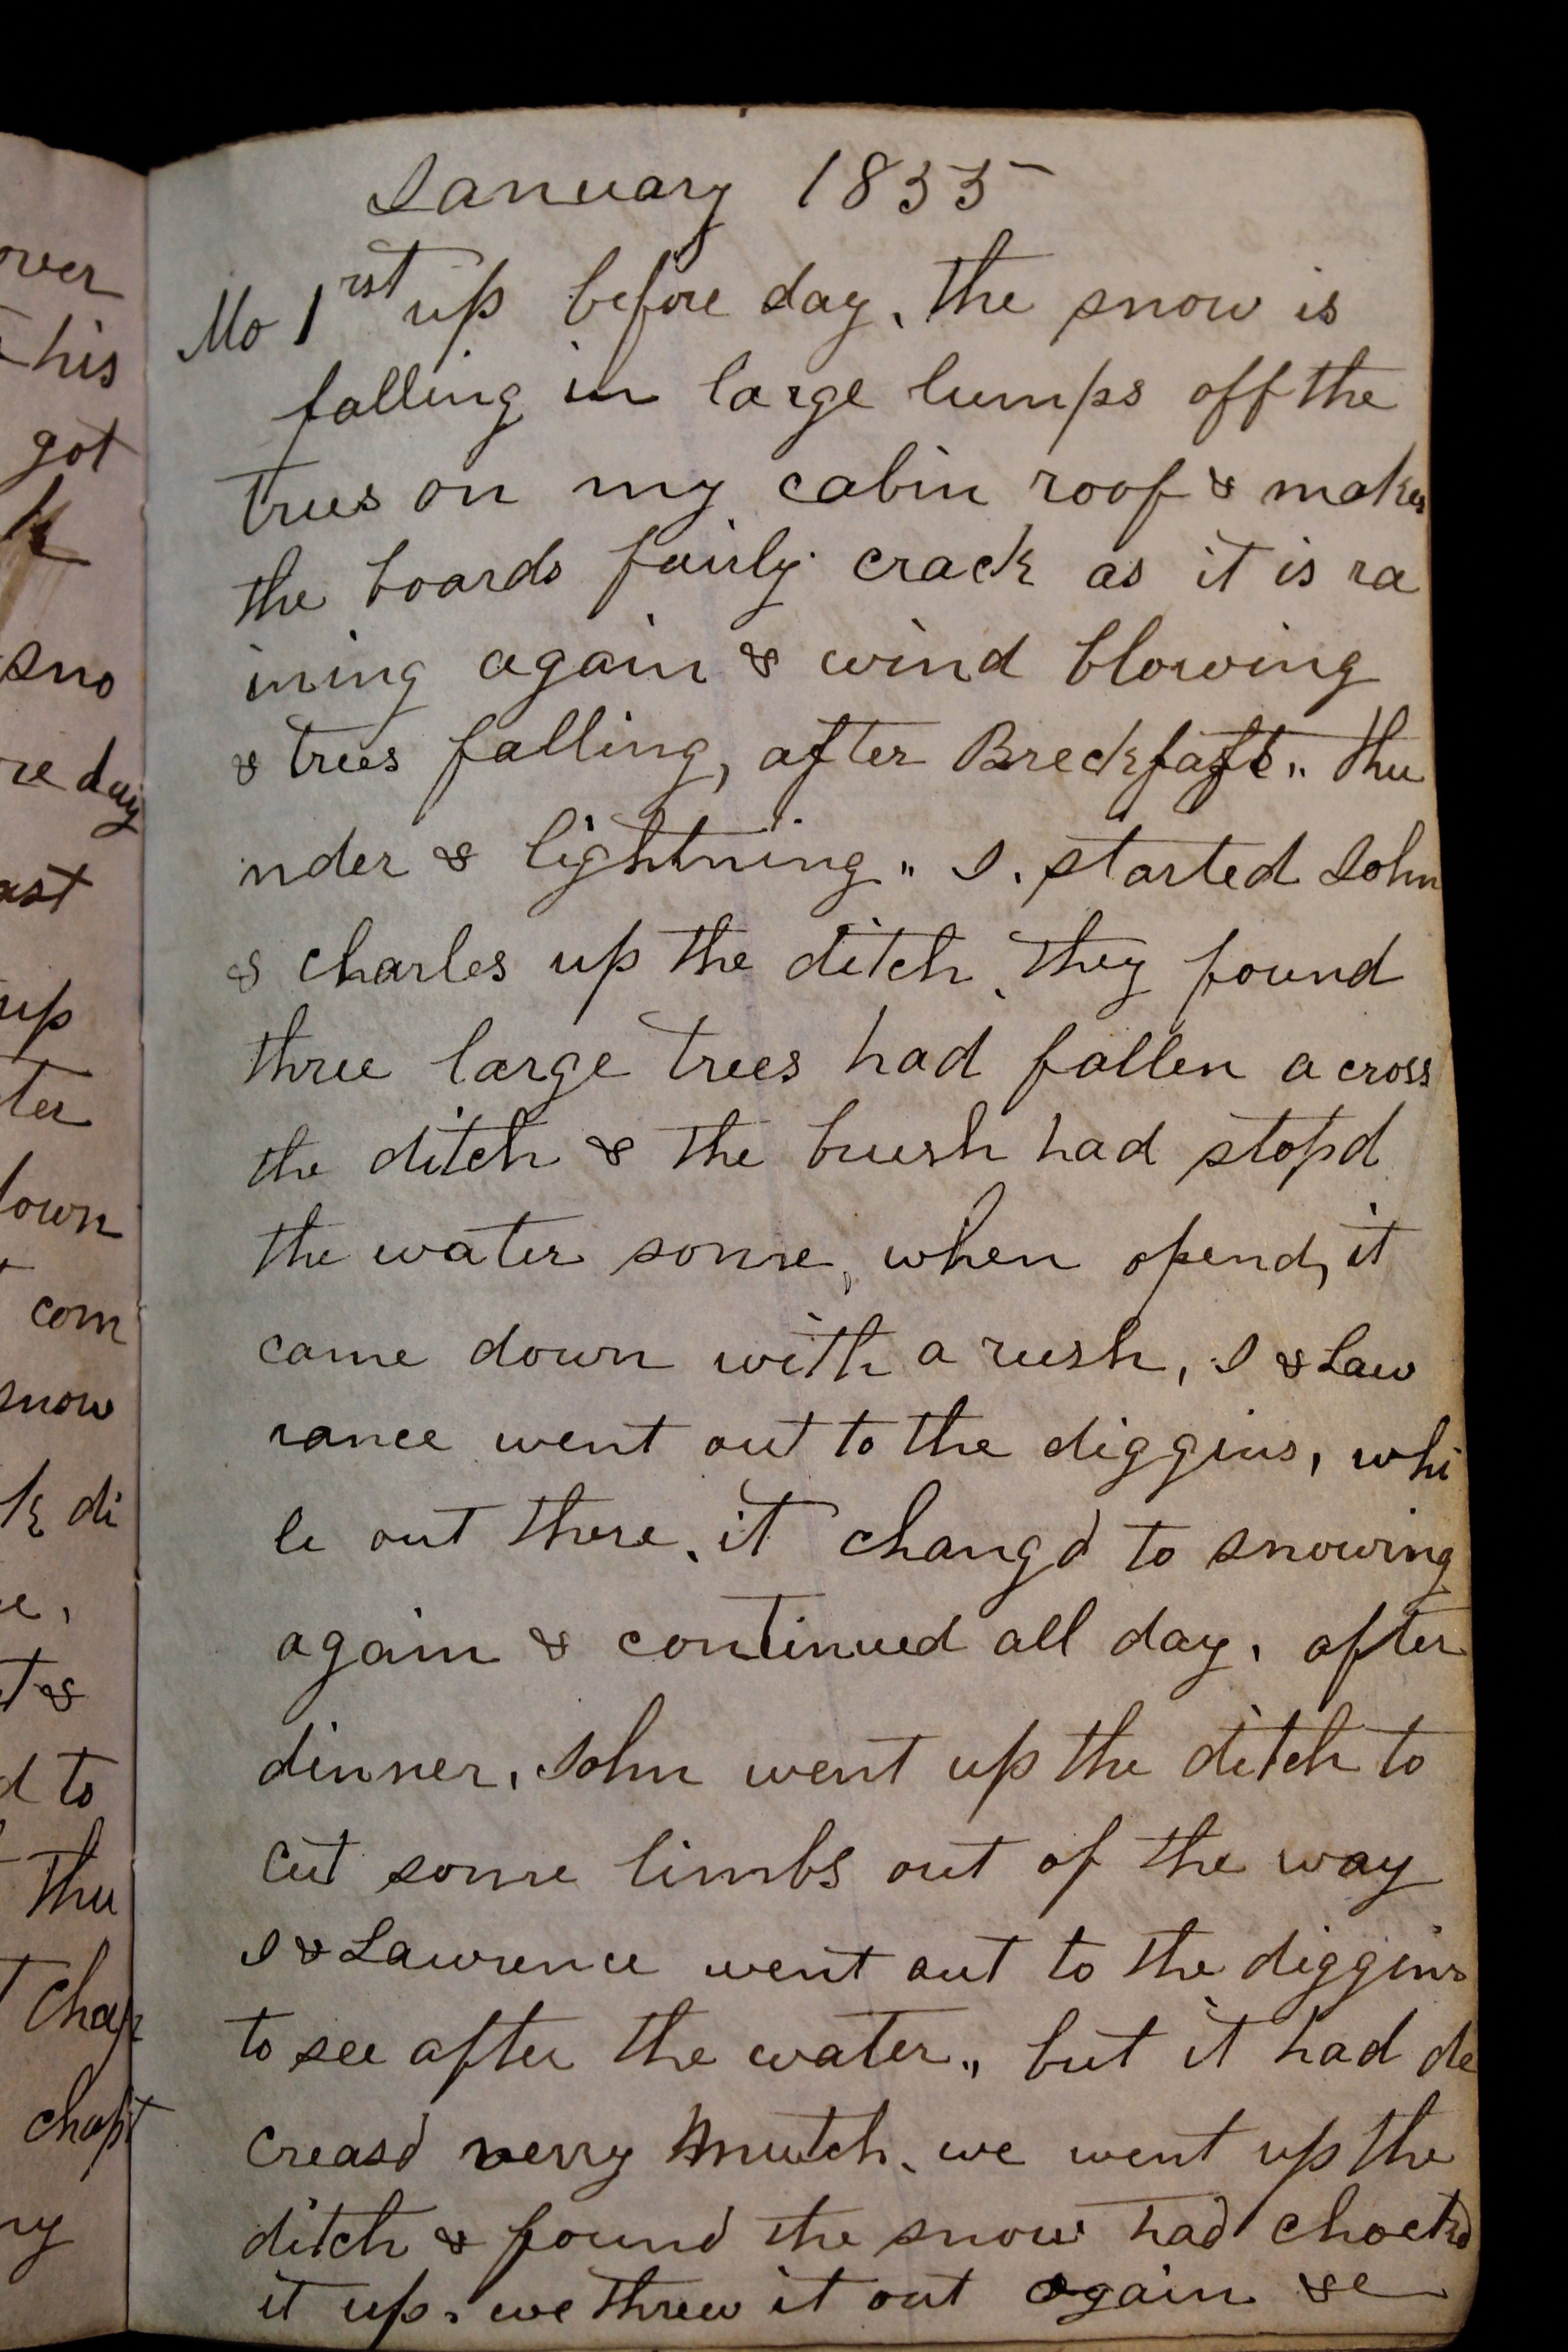 over
his
got
sno
re day
ast
up
ter
down
com
snow
k di
e,
t &
d to
thu
chopt
ny
January 1855
Mo 1rst up before day, the snow is
falling in large lumps off the
trees on my cabin roof & makes
the boards fairly crack as it is ra
ining again & wind blowing
& trees falling, after Breckfast,, thu
nder & lightning,, I. started John
& charles up the ditch, they found
three large trees had fallen a cross
the ditch & the brush had stopd
the water some, when opend, it
came down with a rush, I & Law
rance went out to the diggins, whi
le out there, it changd to snowing
again & continued all day, after
dinner, John went up the ditch to
cut some limbs out of the way
I & Lawrence went out to the diggins
to see after the water,, but it had de
creasd verry mutch, we went up the
ditch & found the snow had chockd
it up, we threw it out again &c